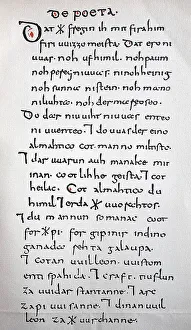 De poeta.
Dat ᚼ fregin ih mit firahim
firi uuizzo meista. Dat ero ni
uuas. noh ufhimil. noh paum
noh pereg ni uuas. ninohheinig
noh sunna nistein. noh mano
niliuhta. noh der mareoseo.
Do dar niuuiht niuuas enteo
ni uuenteo. ⁊ do uuas der eino
almahtico cot manno miltisto
⁊ dar uuarun auh manake mit
inan. cootlihhe geista. ⁊ cot
heilac. Cot almahtico du
himil ⁊ erda ᚼ uuorahtos.
⁊ du mannun so manac coot
for ᚼ pi. for gipmir indino
ganada rehta galaupa.
⁊ cotan uuilleon. uuistom
enti spahida. ⁊ craft. tiuflun
za uuidar stantanne. ⁊ arc
za pi uuisanne. ⁊ dinan uuil
leon za ᚼ uurchanne.